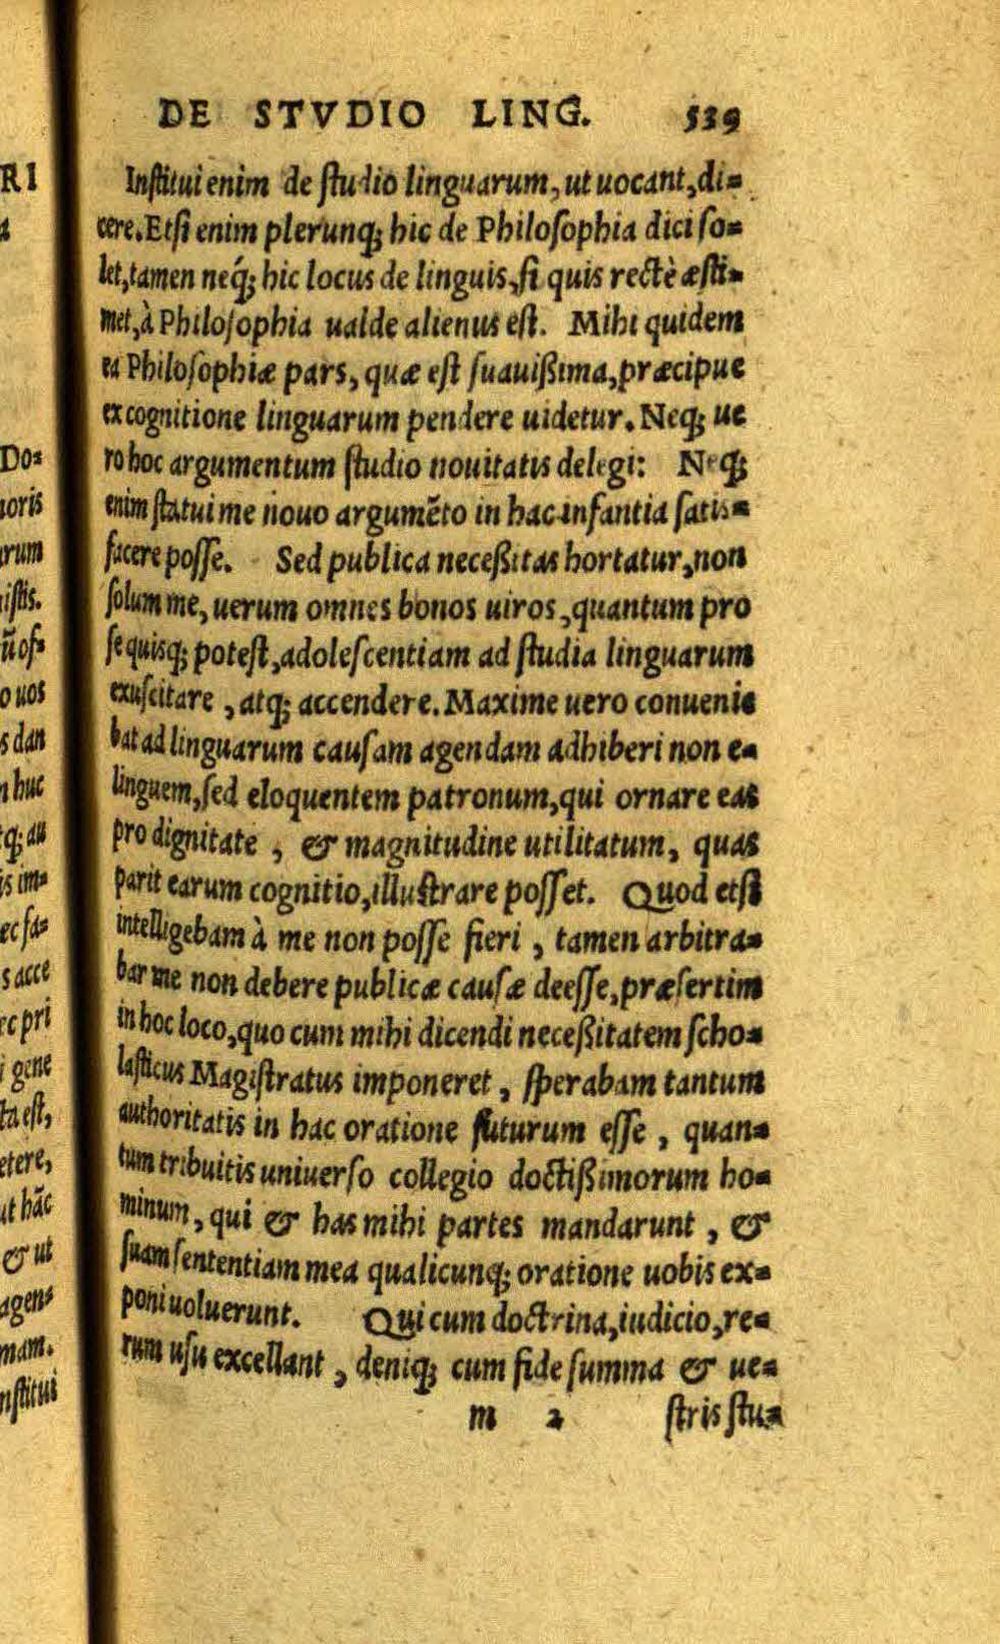 DE STVDIO LING. 539
Inſtitui enim de ſtudio linguarum, ut uocant, di-
cere. Etſi enim plerunq; hic de Philoſophia dici ſo-
let, tamen neq́; hic locus de linguis, ſi quis rectè æſti-
met, à Philoſophia ualde alienus eſt. Mihi quidem
ea Philoſophiæ pars, quæ eſt ſuauißima, præcipue
ex cognitione linguarum pendere uidetur. Neq; ue
ro hoc argumentum ſtudio nouitatis delegi: Neq;
enim ſtatui me nouo argumẽto in hac infantia ſatis-
facere poſſe. Sed publica neceßitas hortatur, non
ſolum me, uerum omnes bonos uiros, quantum pro
ſe quisq; poteſt, adoleſcentiam ad ſtudia linguarum
exuſcitare, atq; accendere. Maxime uero conuenie
bat ad linguarum cauſam agendam adhiberi non e-
linguem, ſed eloquentem patronum, qui ornare eas
pro dignitate, & magnitudine utilitatum, quas
parit earum cognitio, illuſtrare poſſet. Quod etſi
intelligebam à me non poſſe fieri, tamen arbitra-
bar me non debere publicæ cauſæ deeſſe, præſertim
in hoc loco, quo cum mihi dicendi neceßitatem ſcho-
laſticus Magiſtratus imponeret, ſperabam tantum
authoritatis in hac oratione futurum eſſe, quan-
tum tribuitis uniuerſo collegio doctißimorum ho-
minum, qui & has mihi partes mandarunt, &
ſuam ſententiam mea qualicunq; oratione uobis ex-
poni uoluerunt. Qui cum doctrina, iudicio, re-
rum uſu excellant, deniq; cum fide ſumma & ue-
m 2 ſtris ſtu-